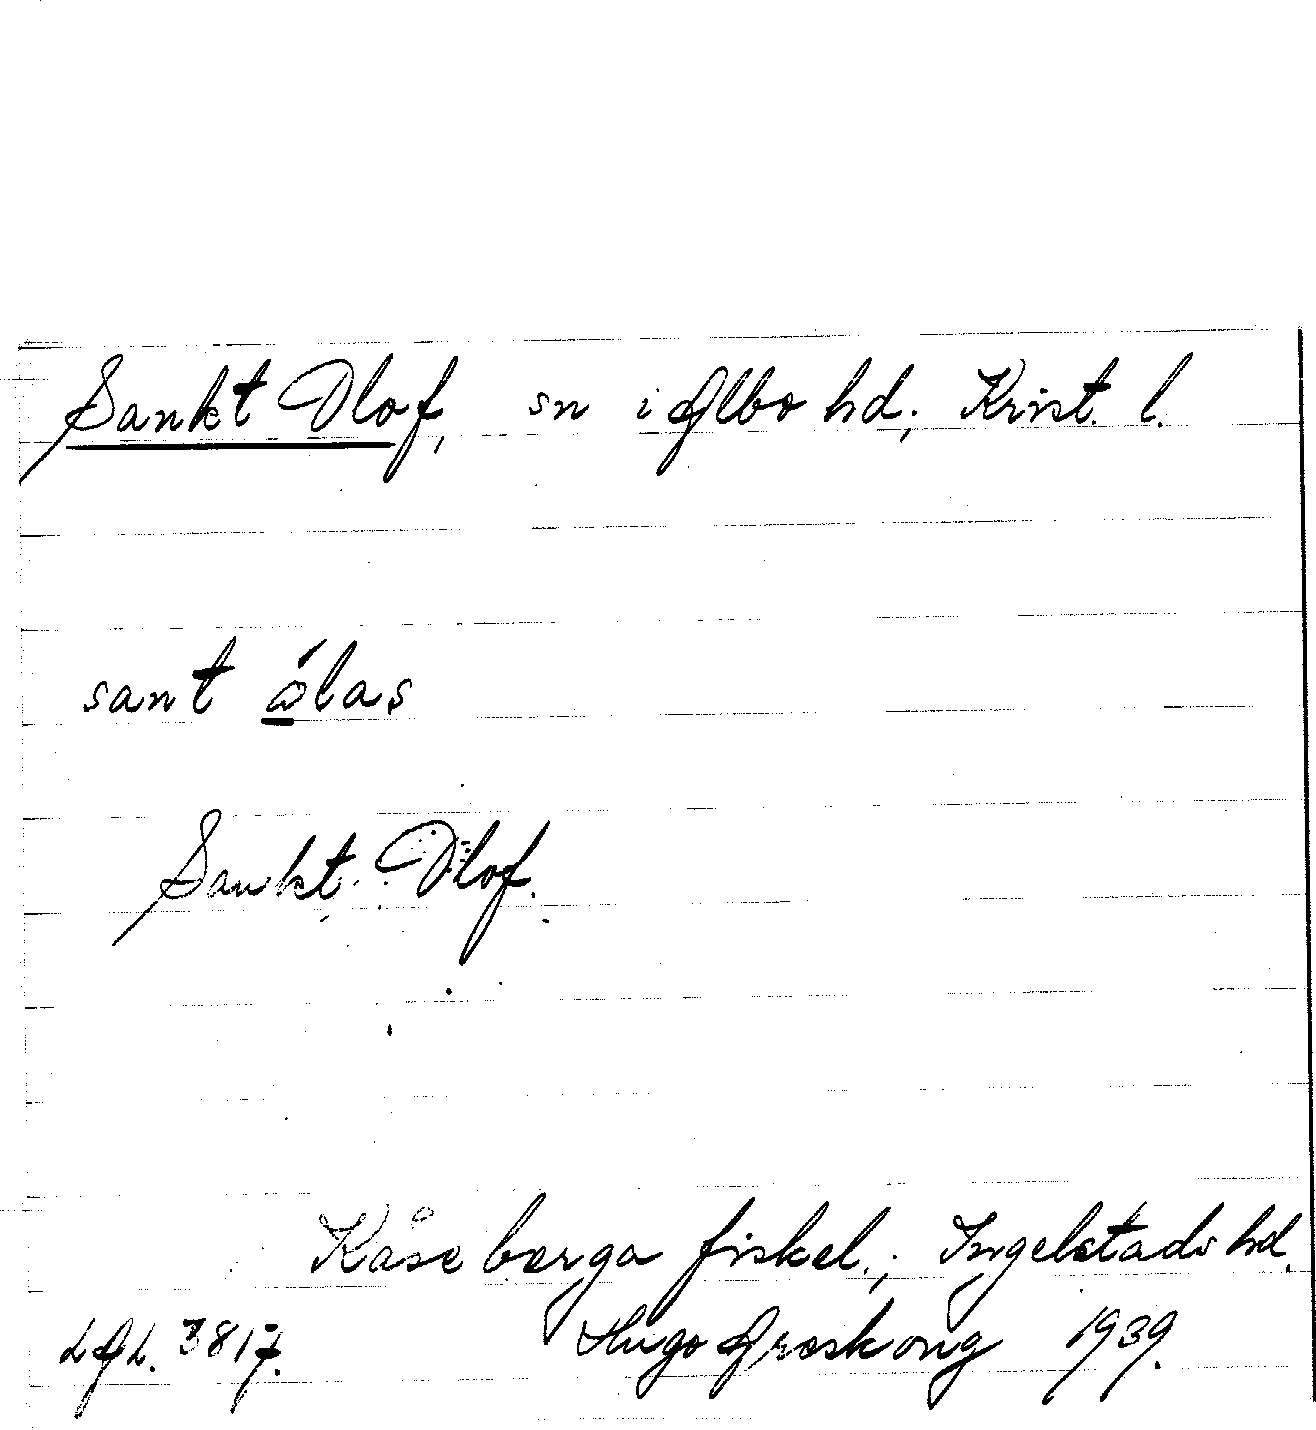 Sankt Olof, sn i Albo hd; Krist. l.
sant ólas
Sankt Olof.
Kåseberga fiskel.; Ingelstads hd.
LAL. 3817. Hugo Areskoug 1939.